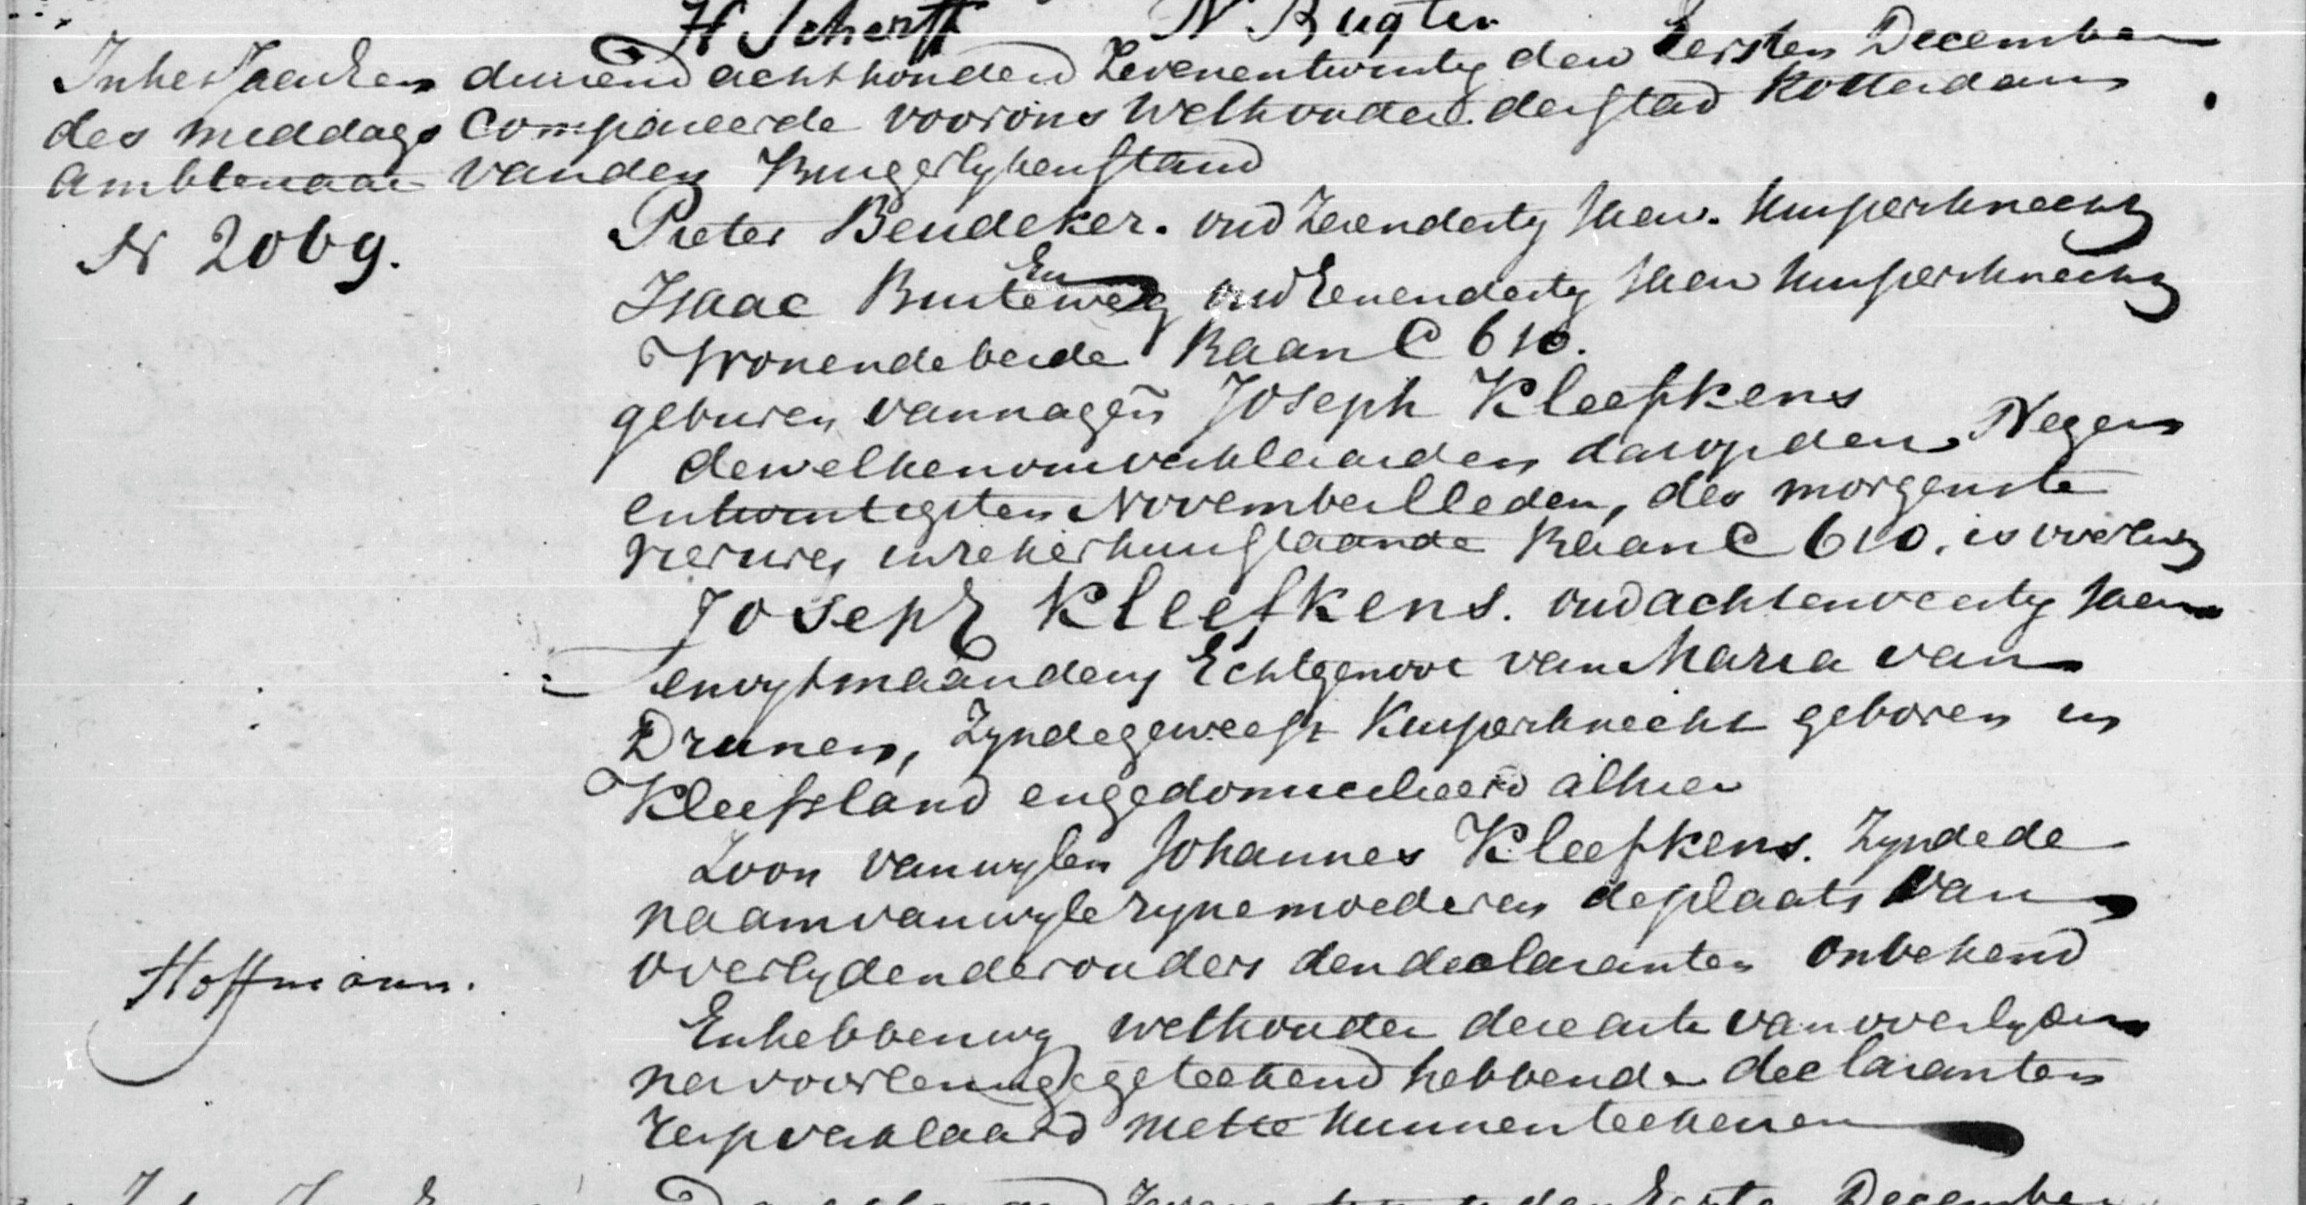 H Scherft N Rugter
In het Jaar Een duizend achthonderd Zevenentwintig den Eersten December
des middags Compareerde voor ons Wethouder der stad Rotterdam
Ambtenaar van den Burgerlyken Stand
N 2069.
Pieter Beudeker. oud Zevendertig Jaar. Kuiperknecht
En
Isaac Buiteweg oud Eenendertig Jaar Kuiperknecht
Wonende beide Baan C 610.
geburen van nagen Joseph Kleefkens
dewelken ons verklaarden dat op den Negen
entwintigsten November lleden, des morgens te
vier uren in zeker huis staande Baan C 610. is overleden
Joseph Kleefkens. oud achtenveertig Jaar
en vyf maanden Echtgenoot van Maria van
Drunen, Zynde geweest Kuiperknecht geboren in
Kleefsland en gedomicilieerd alhier
Zoon van wylen Johannes Kleefkens. Zynde de
naam van wyle zyne moeder en de plaats van
overlyden der ouders den declaranten onbekend
En hebben wy Wethouder deze acte van overlyden
na voorlezing geteekend hebbende declaranten
verklaard niet te kunnen teekenen
Hoffmann.
den Eerste December